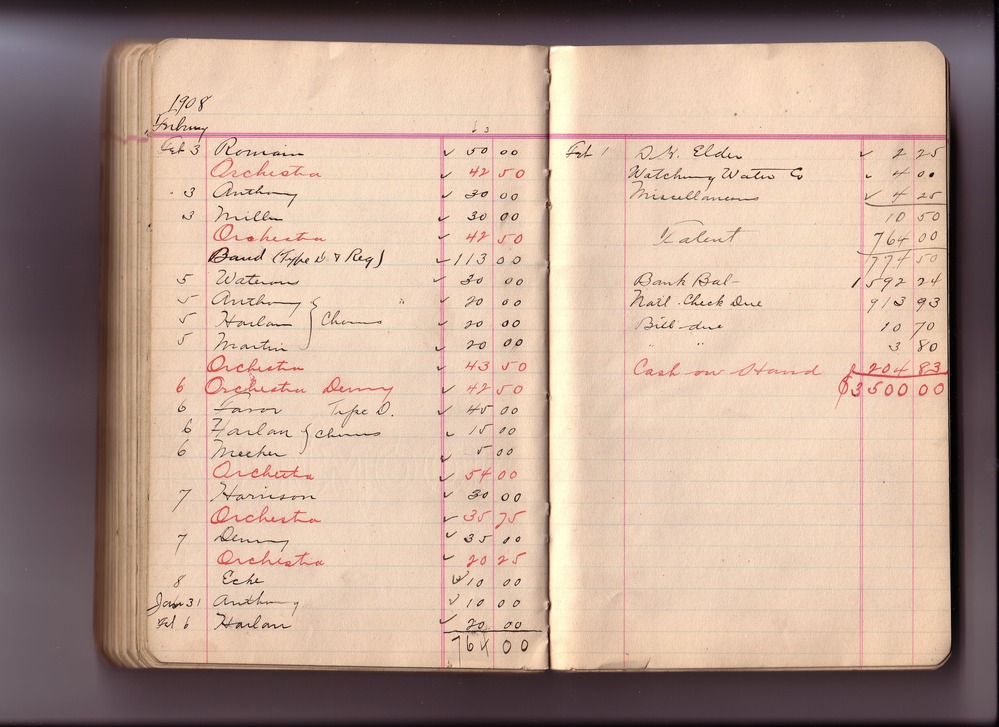 1908
Feb 3 Romain ✓ 50 00
Orchestra ✓ 42 50
3 Anthony ✓ 30 00
3 Miller ✓ 30 00
Orchestra ✓ 42 50
Band (Type D & Reg) ✓ 113 00
5 Waterous ✓ 30 00
5 Anthony " ✓ 20 00
5 Harlan } Chorus ✓ 20 00
5 Martin ✓ 20 00
Orchestra ✓ 43 50
6 Orchestra Denny ✓ 42 50
6 Favor Type D. ✓ 45 00
6 Harlan } Chorus ✓ 15 00
6 Meeker ✓ 5 00
Orchestra ✓ 54 00
7 Harrison ✓ 30 00
Orchestra ✓ 35 75
7 Denny ✓ 35 00
Orchestra ✓ 20 25
8 Ecke ✓ 10 00
Jan 31 Anthony ✓ 10 00
Feb 6 Harlan ✓ 20 00
764 00
Feb 1 D.K. Elder ✓ 2 25
Watchung Water Co ✓ 4 00
Miscellaneous ✓ 4 25
10 50
Talent 764 00
774 50
Bank Bal- 1592 24
Nat'l. Check Due 913 93
Bill-due 10 70
" " 3 80
Cash on Hand 204 83
$3500 00